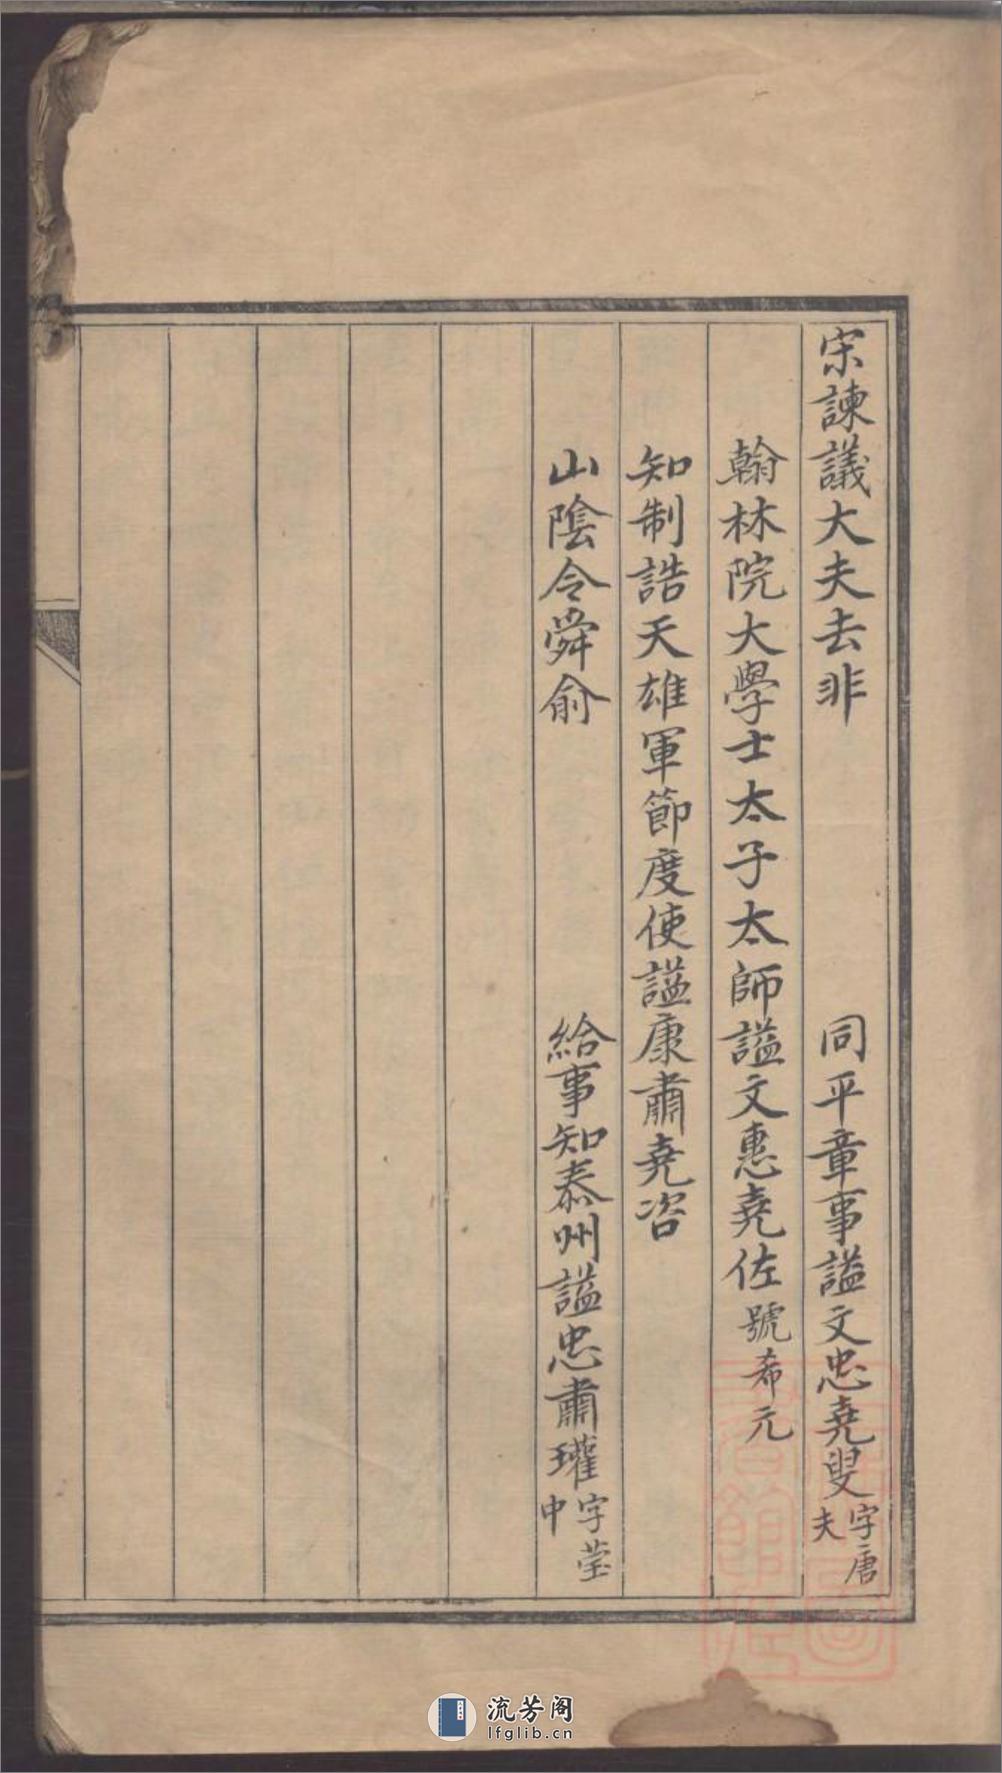 宋諫議大夫去非　同平章事謚文忠堯叟字唐夫
翰林院大學士太子太師謚文惠堯佐號希元
知制誥天雄軍節度使謚康肅堯咨
山陰令舜俞　給事知泰州謚忠肅瓘字瑩中
流芳阁
lfglib.cn